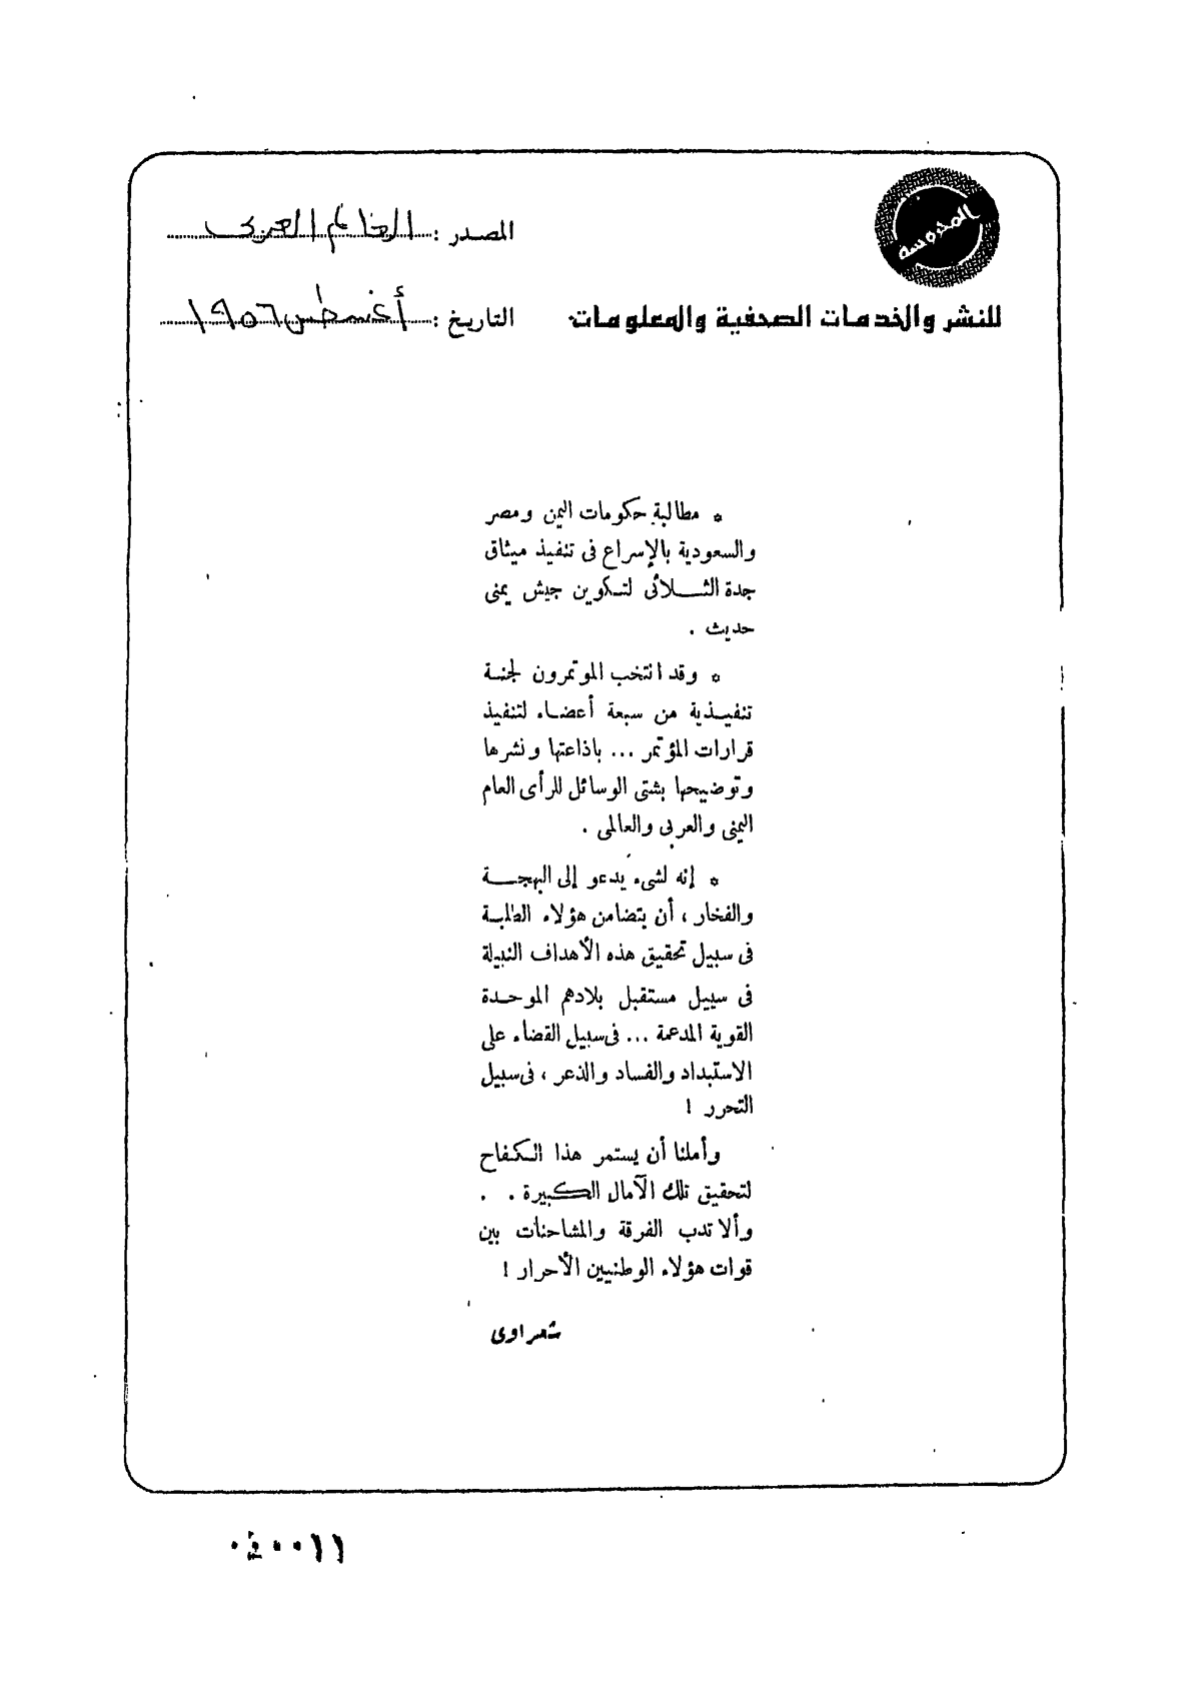 المحروسة
المصدر : العالم العربى
للنشر والخدمات الصحفية والمعلومات
التاريخ : أغسطس ١٩٥٦
* مطالبة حكومات اليمن ومصر
والسعودية بالإسراع فى تنفيذ ميثاق
جدة الثـــلاثى لتكوين جيش يمنى
حديث .
* وقد انتخب المؤتمرون لجنة
تنفيـذية من سبعة أعضاء لتنفيذ
قرارات المؤتمر ... باذاعتها ونشرها
وتوضيحها بشتى الوسائل للرأى العام
اليمنى والعربى والعالمى .
* إنه لشىء يدعو إلى البهجـــة
والفخار ، أن يتضامن هؤلاء الطلبـة
فى سبيل تحقيق هذه الأهداف النبيلة
فى سبيل مستقبل بلادهم الموحـدة
القوية المدعمة ... فى سبيل القضاء على
الاستبداد والفساد والذعر ، فى سبيل
التحرر !
وأملنا أن يستمر هذا الكفاح
لتحقيق تلك الآمال الكبيرة . .
وألا تدب الفرقة والمشاحنات بين
قوات هؤلاء الوطنيين الأحرار !
شعراوى